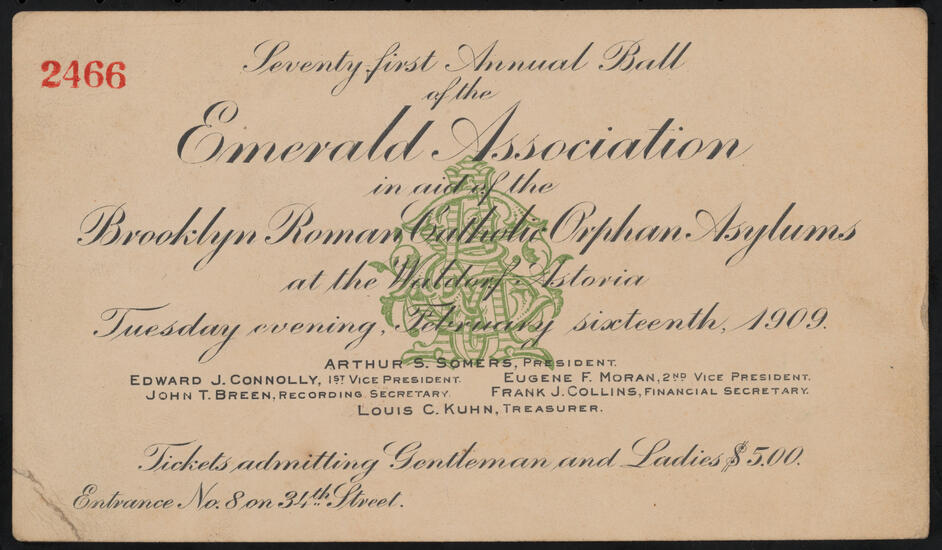 2466
Seventy-first Annual Ball
of the
Emerald Association
in aid of the
Brooklyn Roman Catholic Orphan Asylums
at the Waldorf-Astoria
Tuesday evening, February sixteenth, 1909.
ARTHUR S. SOMERS, PRESIDENT.
EDWARD J. CONNOLLY, 1ST VICE PRESIDENT. EUGENE F. MORAN, 2ND VICE PRESIDENT.
JOHN T. BREEN, RECORDING SECRETARY. FRANK J. COLLINS, FINANCIAL SECRETARY.
LOUIS C. KUHN, TREASURER.
Tickets admitting Gentleman and Ladies $5.00.
Entrance No. 8 on 34th Street.